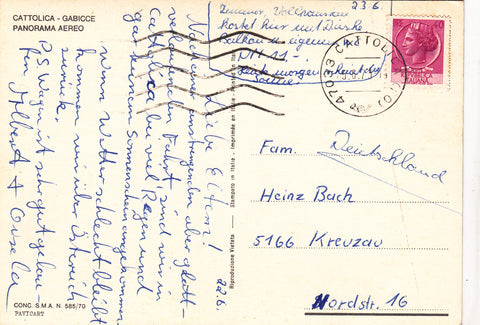 CATTOLICA - GABICCE
PANORAMA AEREO
23 6.
Zimmer Vollpension
kostet hier mit Dusche
Balkon u. eigenem W.C.
DM 11.-.
40
47033 CATTOLICA (FO)
Liebe Eltern!
22.6.
Nach einer anstrengenden aber glatt-
verlaufenden Fahrt, sind wir in
Cattolica bei viel Regen und
gar keinem Sonnenschein angekommen.
Wenn Wetter schlecht bleibt
kommen wir über Österreich
zurück.
P.S. Wagen ist sehr gut gelau-
fen. Albert + Gisela
Riproduzione Vietata — Stampato in Italia - Imprimée en Italie - Printed in Italy
Fam. Deutschland
Heinz Bach
5166 Kreuzau
Nordstr. 16
CONC. S.M.A. N. 585/70
PAVICART